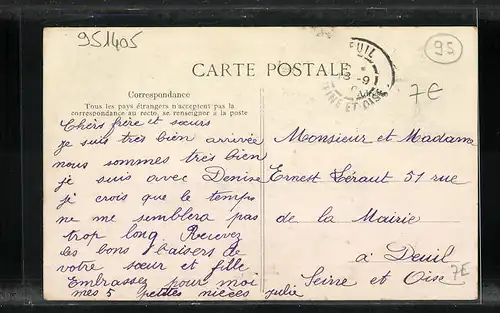 951405
95
CARTE POSTALE
7E
Correspondance
Tous les pays étrangers n'acceptent pas la
correspondance au recto, se renseigner à la poste
Chèrs frère et sœurs
je suis très bien arrivée
nous sommes très bien
je suis avec Denise
je crois que le temps
ne me semblera pas
trop long. Recevez
les bons baisers de
votre sœur et fille
Embrassez pour moi
mes 5 petites nièces Julie
Monsieur et Madame
Ernest Léraut 51 rue
de la Mairie
à Deuil
Seine et Oise
7E
EUIL
INE ET OISE